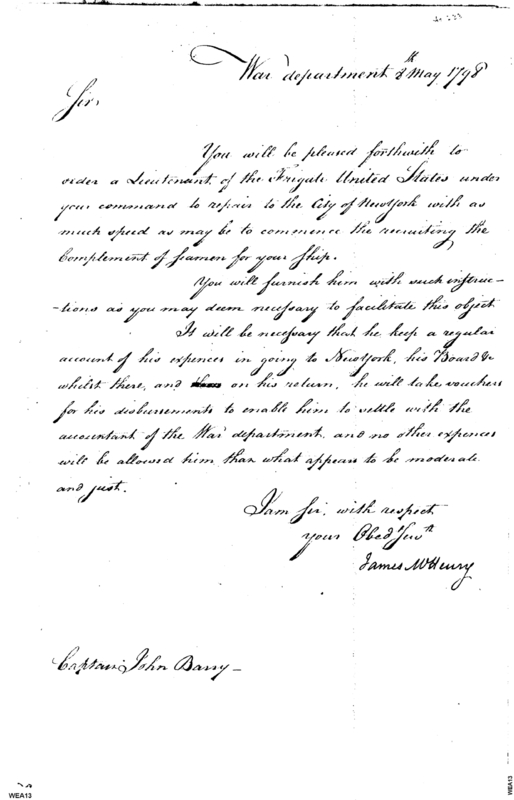 War department 8th May 1798
Sir,
You will be pleased forthwith to
order a Lieutenant of the Frigate United States under
your command to repair to the City of NewYork with as
much speed as may be to commence the recruiting the
Complement of seamen for your Ship.
You will furnish him with such instruc-
-tions as you may deem necessary to facilitate this object
It will be necessary that he keep a regular
account of his expences in going to NewYork, his Board &c
whilst there, and on his return, he will take vouchers
for his disbursements to enable him to settle with the
accountant of the War department, and no other expences
will be allowed him than what appears to be moderate
and just.
I am Sir, with respect
your Obedt Servt
James McHenry
Captain John Barry -
WEA13
WEA13